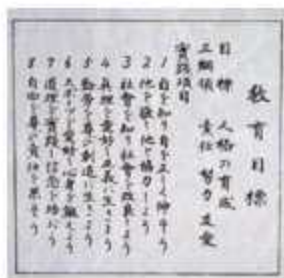 教育目標
目標 人格の育成
三綱領 責任 努力 友愛
実践項目
1 自を知り自を正しく伸そう
2 他を敬い他と協力しよう
3 社会を知り社会を改良しよう
4 真理を愛好し正義に生きよう
5 勤労を尊び創造に生きよう
6 スポーツを愛好し心身を鍛えよう
7 道理を実践し信念を培おう
8 自由を尊び責任を果そう